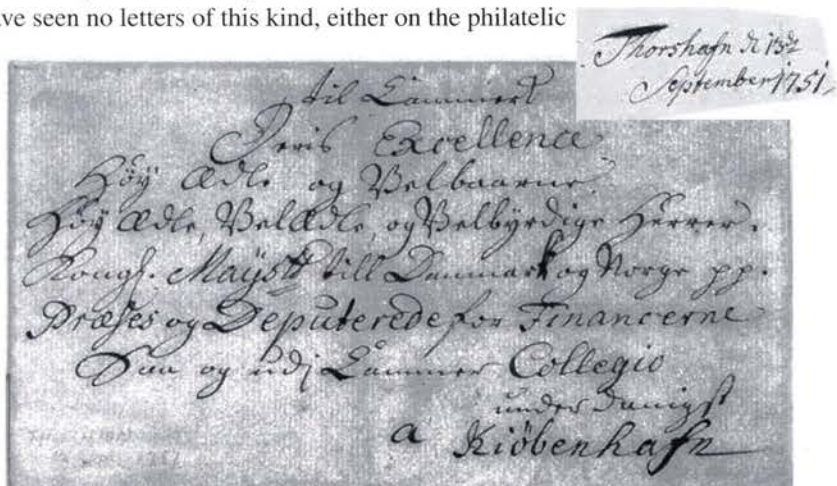 ve seen no letters of this kind, either on the philatelic
Thorshafn d 13de
September 1751,
til Cammeret
Deris Excellence
Høÿ Ædle og Velbaarne
Høÿ Ædle, VelÆdle, og Velbyrdige Herrer.
Kongl. Maÿsts till Danmark og Norge pp.
Præses og Deputerede for Financerne
Saa og udj Cammer Collegio
under danigst
a Kiöbenhafn